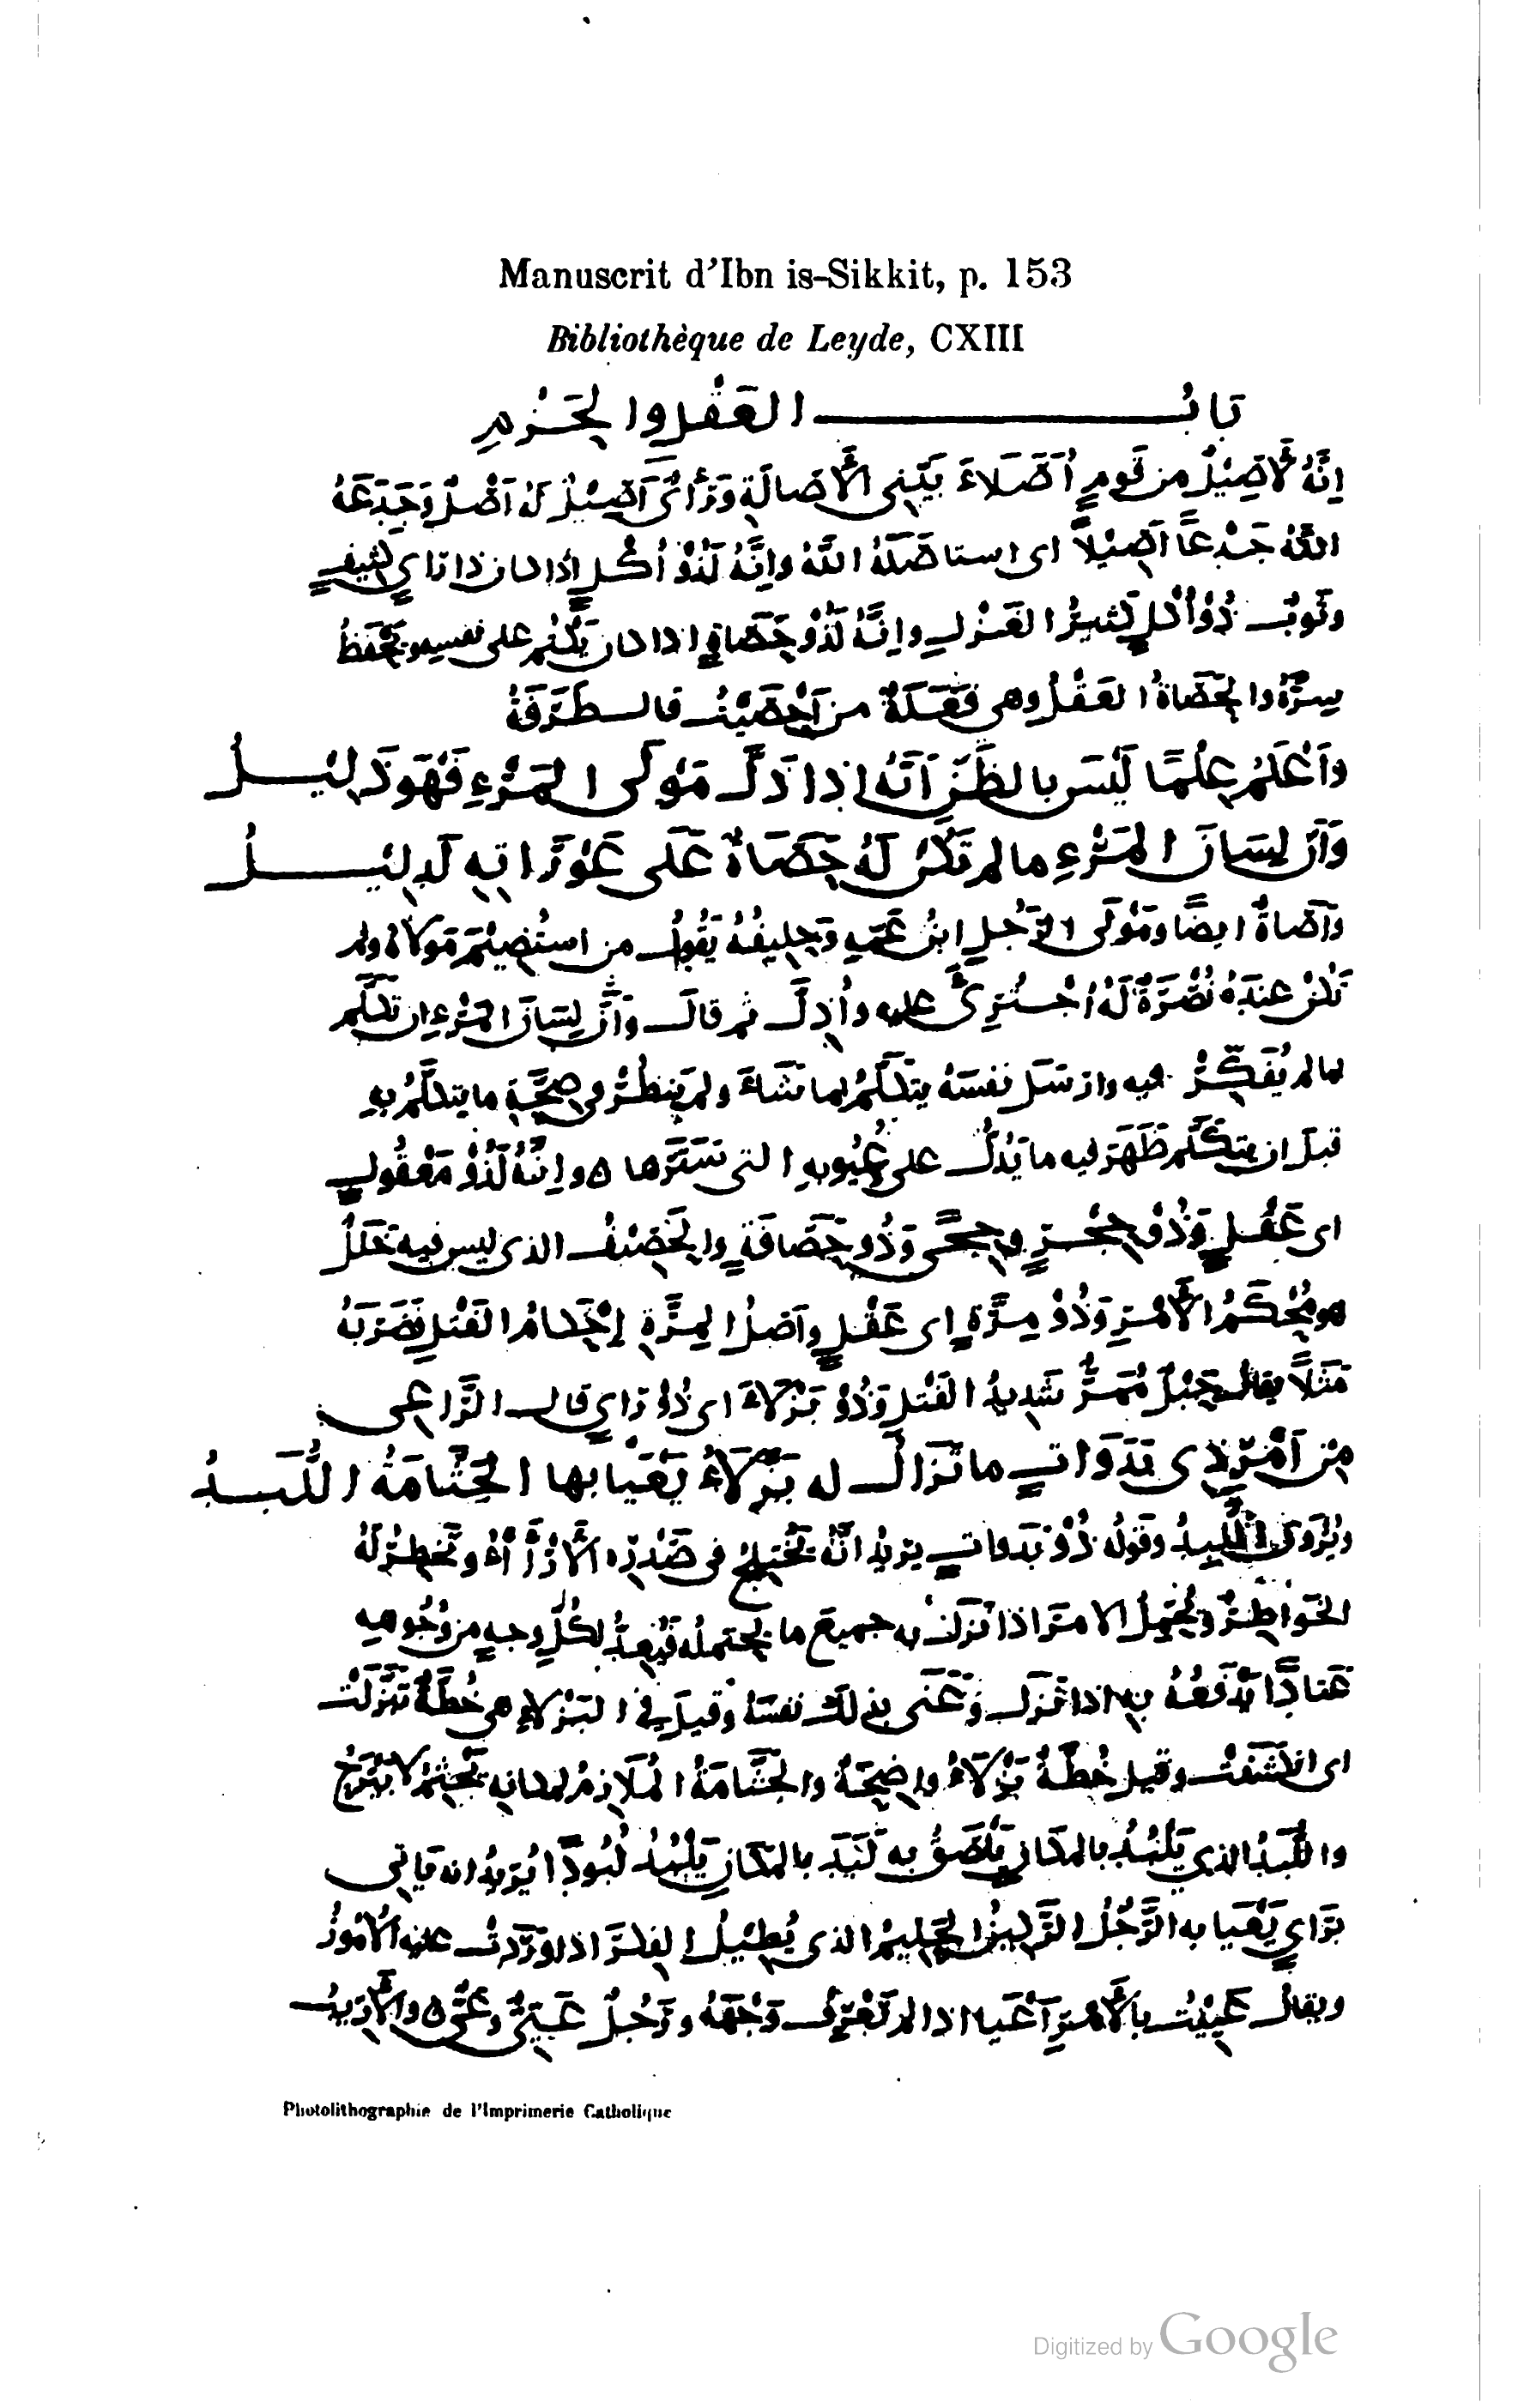 Manuscrit d'Ibn is-Sikkit, p. 153
Bibliothèque de Leyde, CXIII
بَابُ العَقْلِ والحَزْمِ
إنَّهُ لَأَصِيْلٌ من قَومٍ أُصَلاءَ بَيِّنِي الأَصَالَةِ وَرَأْيٌ أَصِيْلٌ لَهُ أَصْلٌ وَجَدَعَهُ
اللَّهُ جَدْعًا أَصِيْلًا اي استاصَلَهُ اللَّهُ وإنَّهُ لَذُوْ أُكْلٍ إذا كان ذا رَايٍ
وثَوبٌ ذُوْ أُكْلٍ كَثِيرُ الغَزْلِ وإنَّهُ لَذُوْ حَصَاةٍ اذا كان يَكْتُم على نفسِهِ ويَحْفَظُ
سِرَّهُ والحَصَاةُ العَقْلُ وهي فَعَلَةٌ من أَحْصَيْتُ قال طَرَفَةُ
وأَعْلَمُ عِلْمًا لَيْسَ بالظَّنِّ أَنَّهُ اذا ذَلَّ مَوْلَى المَرْءِ فَهْوَ ذَلِيْلُ
وَأنَّ لِسَانَ المَرْءِ ما لم تَكُنْ لَهُ حَصَاةٌ عَلَى عَوْرَاتِهِ لَدَلِيْلُ
وأَصَاةٌ ايضًا ومَوْلَى الرَّجُلِ ابنُ عَمِّهِ وَحَلِيفُهُ يَقُولُ من استُضِيْمَ مَولاهُ ولم
تَكُنْ عندَهُ نُصْرَةٌ لَهُ اجْتُرِئَ عليه وأُذِلَّ ثم قالَ وَأَنَّ لِسَانَ المَرْءِ ان تكلَّم
بما لم يُفَكِّرْ فيه وارسَلَ نفسَهُ يتكلَّمُ بما تشَاءَ ولم يَنظُرْ في صِحَّةِ ما يتكلَّمُ بِهِ
قبلَ ان يتكَلَّم ظَهَرَ فيه ما يَدُلُّ على عُيُوبِهِ التي سَتَرَها ه وإنَّهُ لَذُوْ مَعْقُولٍ
اي عَقْلٍ وَذُوْ حِجْرٍ وحِجًى وَذُو حَصَافَةٍ والحَصِيْفُ الذي ليس فيه خَلَلٌ
هو مُحْكَمُ الأَمْرِ وَذُوْ مِرَّةٍ اي عَقْلٍ وأَصلُ المِرَّةِ إحْكامُ الفَتْلِ فضَرَبَهُ
مَثَلًا يقال حَبْلٌ مُمَرٌّ شَدِيدُ الفَتْلِ وَذُوْ بَزْلاءَ اي ذُوْ رَايٍ قال الرَّاعي
مِنْ أَمْرِ ذي بَدَوَاتٍ ما تَزَالُ له بَزْلاءُ يَعْيَا بها الجَثَّامَةُ اللُّبَدُ
ويُرْوَى اللَّبِدُ وقَولُهُ ذُوْ بَدَواتٍ يريدُ انَّهُ تَخْتَلِجُ في صَدْرِهِ الآراءُ وتَخطِرُ لَهُ
الخَوَاطِرُ الامرَ اذا نَزَلَ به جميعَ ما يحتمله فيُعِدُّ لكُلِّ وجهٍ من وُجُوهِهِ
عَتَادًا يَدْفَعُهُ بِهِ اذا نَزَلَ وَعَنَى بذلك نفسَهُ وقيلَ في البَزْلاءِ هي خُطَّةٌ تَبَزَّلَتْ
اي انكَشَفَتْ وقيلَ خُطَّةٌ بَزْلاءُ واضِحَةٌ والجَثَّامَةُ المُلازِمُ لمكانِهِ يَجْثِمُ لا يَبْرَحُ
واللُّبَدُ الذي يَلْبُدُ بالمكانِ يَلْصَقُ به لَبَدَ بالمَكانِ يَلْبُدُ لُبُودًا يُرِيدُ انه يَاتي
بِرَايٍ يَعْيَا به الرَّجُلُ الرَّكِيْنُ الحَلِيمُ الذي يُطِيْلُ الفِكرَ اذا وَرَدَتْ عليه الأمُوْرُ
ويقال عَيِيْتُ بالأَمْرِ أَعْيَا اذا لم تَعْرِفْ وَجْهَهُ ورَجُلٌ عَيِيٌّ وعَيٌّ ه والأَرِيْبُ
Photolithographie de l'Imprimerie Catholique
Digitized by Google